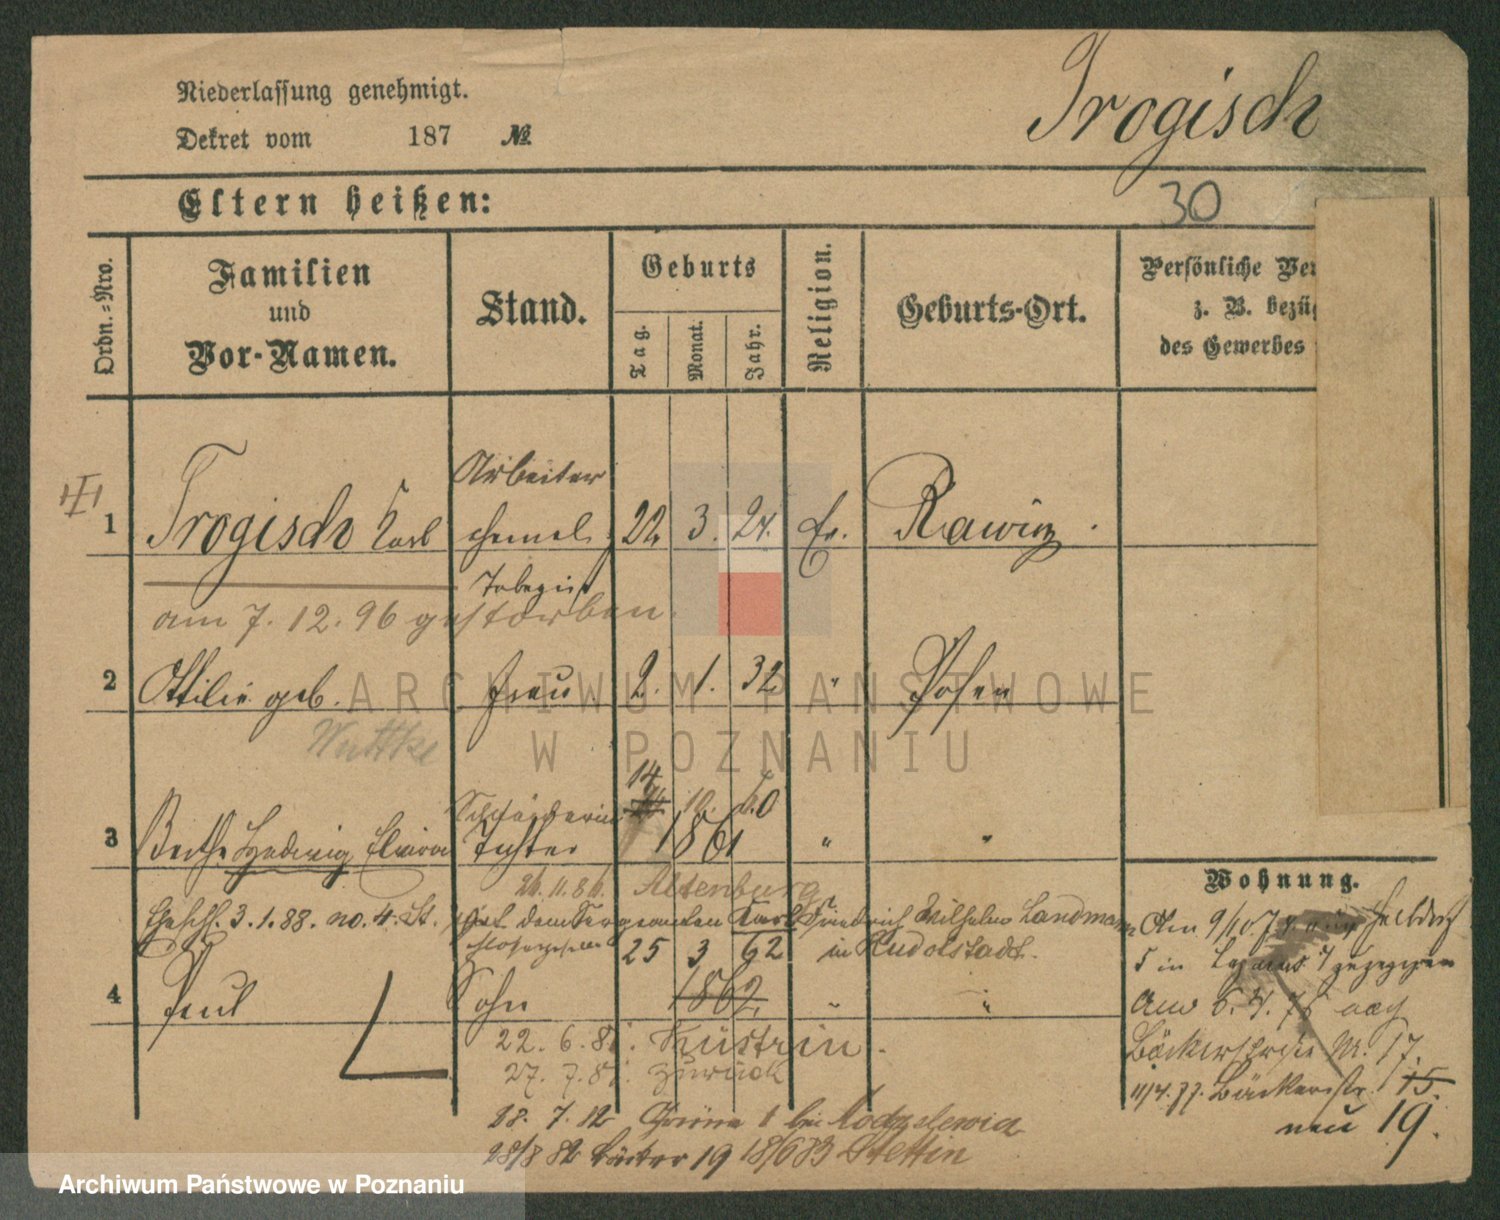 Niederlassung genehmigt.
Dekret vom 187 №
Trogisch
Eltern heißen:
30
Ordn.=Nro.
Familien
und
Vor-Namen.
Stand.
Geburts
Tag.
Monat.
Jahr.
Religion.
Geburts-Ort.
Persönliche Ver
z. B. bezüg
des Gewerbes
Arbeiter
1 Trogisch Karl ehemal. 22. 3. 24. Ev. Rawicz.
am 7. 12. 96 gestorben.
2 Ottilie geb. Frau. 2. 1. 32 " Posen
Wuttke
14
10. 60
3 Bertha Hedwig Elvira Tochter 1861 " "
Wohnung.
26. 11. 86. Altenburg
Eheschl. 3. 1. 88. no. 4. St. mit dem Sergeanten Karl Friedrich Wilhelm Landmann
25 3 62 in Rudolstadt.
4 Paul Sohn 1862. " "
Am 9/10. 7
5 in Lazarus gezogen
Am 5. 4. 75 nach
Bäckerstraße Nr. 17.
11/4. 77. Bäckerstr. 15.
neu 19.
22. 6. 8 Küstrin.
27. 7. 8 zurück
28. 7. 12 1 bei
28/8 82 19 18/683 Stettin
ARCHIWUM PAŃSTWOWE
W POZNANIU
Archiwum Państwowe w Poznaniu